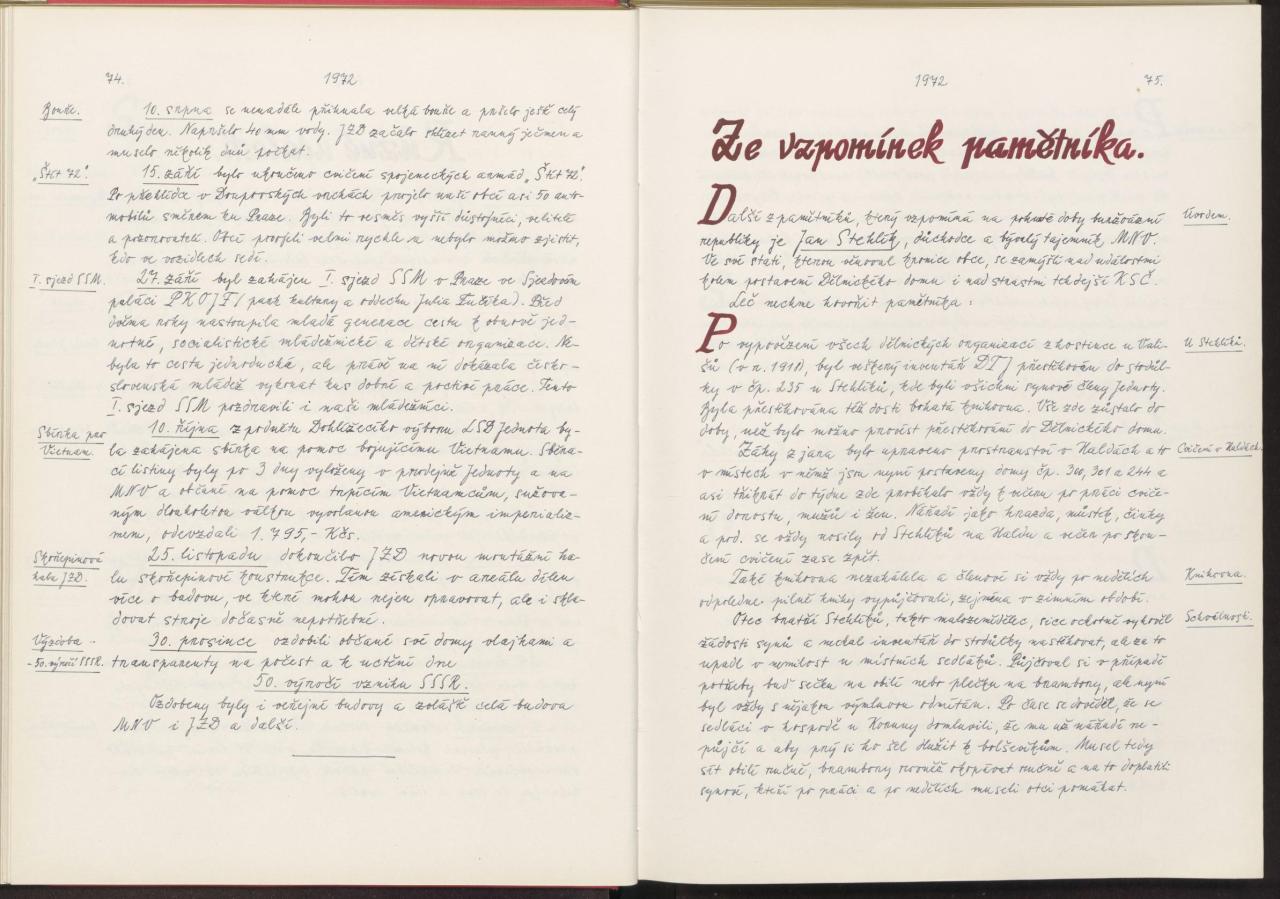 74.
1972
Bouře.
10. srpna se nenadále přihnala velká bouře a pršelo ještě celý
druhý den. Napršelo 40 mm vody. JZD začalo sklízet ranný ječmen a
muselo několik dnů počkat.
„Štít 72".
15. září bylo ukončeno cvičení spojeneckých armád „Štít 72".
Po přehlídce v Doupovských vrchách projelo naší obcí asi 50 auto-
mobilů směrem ku Praze. Byli to vesměs vyšší důstojníci, velitelé
a pozorovatelé. Obcí projeli velmi rychle a nebylo možno zjistit,
kdo ve vozidlech sedí.
I. sjezd SSM.
27. září byl zahájen I. sjezd SSM v Praze ve Sjezdovém
paláci PKOJF / park kultury a oddechu Julia Fučíka). Před
dvěma roky nastoupila mladá generace cestu k obnově jed-
notné, socialistické mládežnické a dětské organizace. Ne-
byla to cesta jednoduchá, ale právě na ní dokázala česko-
slovenská mládež vykonat kus dobré a poctivé práce. Tento
I. sjezd SSM pozdravili i naši mládežníci.
Sbírka pro
Vietnam.
10. října z podnětu Dohlížecího výboru LSD Jednota by-
la zahájena sbírka na pomoc bojujícímu Vietnamu. Sběra-
cí listiny byly po 3 dny vyloženy v prodejně Jednoty a na
MNV a občané na pomoc trpícím Vietnamcům, sužova-
ným dlouholetou válkou vyvolanou americkým imperializ-
mem, odevzdali 1.795,- Kčs.
Skořepinová
hala JZD.
25. listopadu dokončilo JZD novou montážní ha-
lu skořepinové konstrukce. Tím získali v areálu dílen
více o budovu, ve které mohou nejen opravovat, ale i skla-
dovat stroje dočasně nepotřebné.
Výzdoba -
- 50. výročí SSSR.
30. prosince ozdobili občané své domy vlajkami a
transparenty na počest a k uctění dne
50. výročí vzniku SSSR.
Ozdobeny byly i veřejné budovy a zvláště celá budova
MNV i JZD a další.
1972
75.
Ze vzpomínek pamětníka.
Úvodem.
Další z pamětníků, který vzpomíná na pohnuté doby buržoazní
republiky je Jan Stehlík, důchodce a bývalý tajemník MNV.
Ve své stati, kterou věnoval kronice obce, se zamýšlí nad událostmi
kolem postavení Dělnického domu i nad strastmi tehdejší KSČ.
Leč nechme hovořit pamětníka:
U Stehlíků.
Po vypovězení všech dělnických organizací z hostince u Vali-
šů (v r. 1918), byl veškerý inventář DTJ přestěhován do stodůl-
ky v čp. 235 u Stehlíků, kde byli všichni synové členy Jednoty.
Byla přestěhována též dosti bohatá knihovna. Vše zde zůstalo do
doby, než bylo možno provést přestěhování do Dělnického domu.
Cvičení v Haldách.
Záhy z jara bylo upraveno prostranství v Haldách a to
v místech v němž jsou nyní postaveny domy čp. 300, 301 a 244 a
asi třikrát do týdne zde probíhalo vždy k večeru po práci cviče-
ní dorostu, mužů i žen. Nářadí jako hrazda, můstek, činky
a pod. se vždy nosily od Stehlíků na Haldu a večer po skon-
čení cvičení zase zpět.
Knihovna.
Také knihovna nezahálela a členové si vždy po nedělích
odpoledne pilně knihy vypůjčovali, zejména v zimním období.
Schválnosti.
Otec bratří Stehlíků, takto malozemědělec, sice ochotně vyhověl
žádosti synů a nechal inventář do stodůlky nastěhovat, ale za to
upadl v nemilost u místních sedláků. Půjčoval si v případě
potřeby buď sečku na obilí nebo plečku na brambory, ale nyní
byl vždy s nějakou výmluvou odmítán. Po čase se dověděl, že se
sedláci v hospodě u Koruny domluvili, že mu už nářadí ne-
půjčí a aby prý si ho šel dlužit k bolševikům. Musel tedy
sít obilí ručně, brambory rovněž okopávat ručně a na to doplatili
synové, kteří po práci a po nedělích museli otci pomáhat.